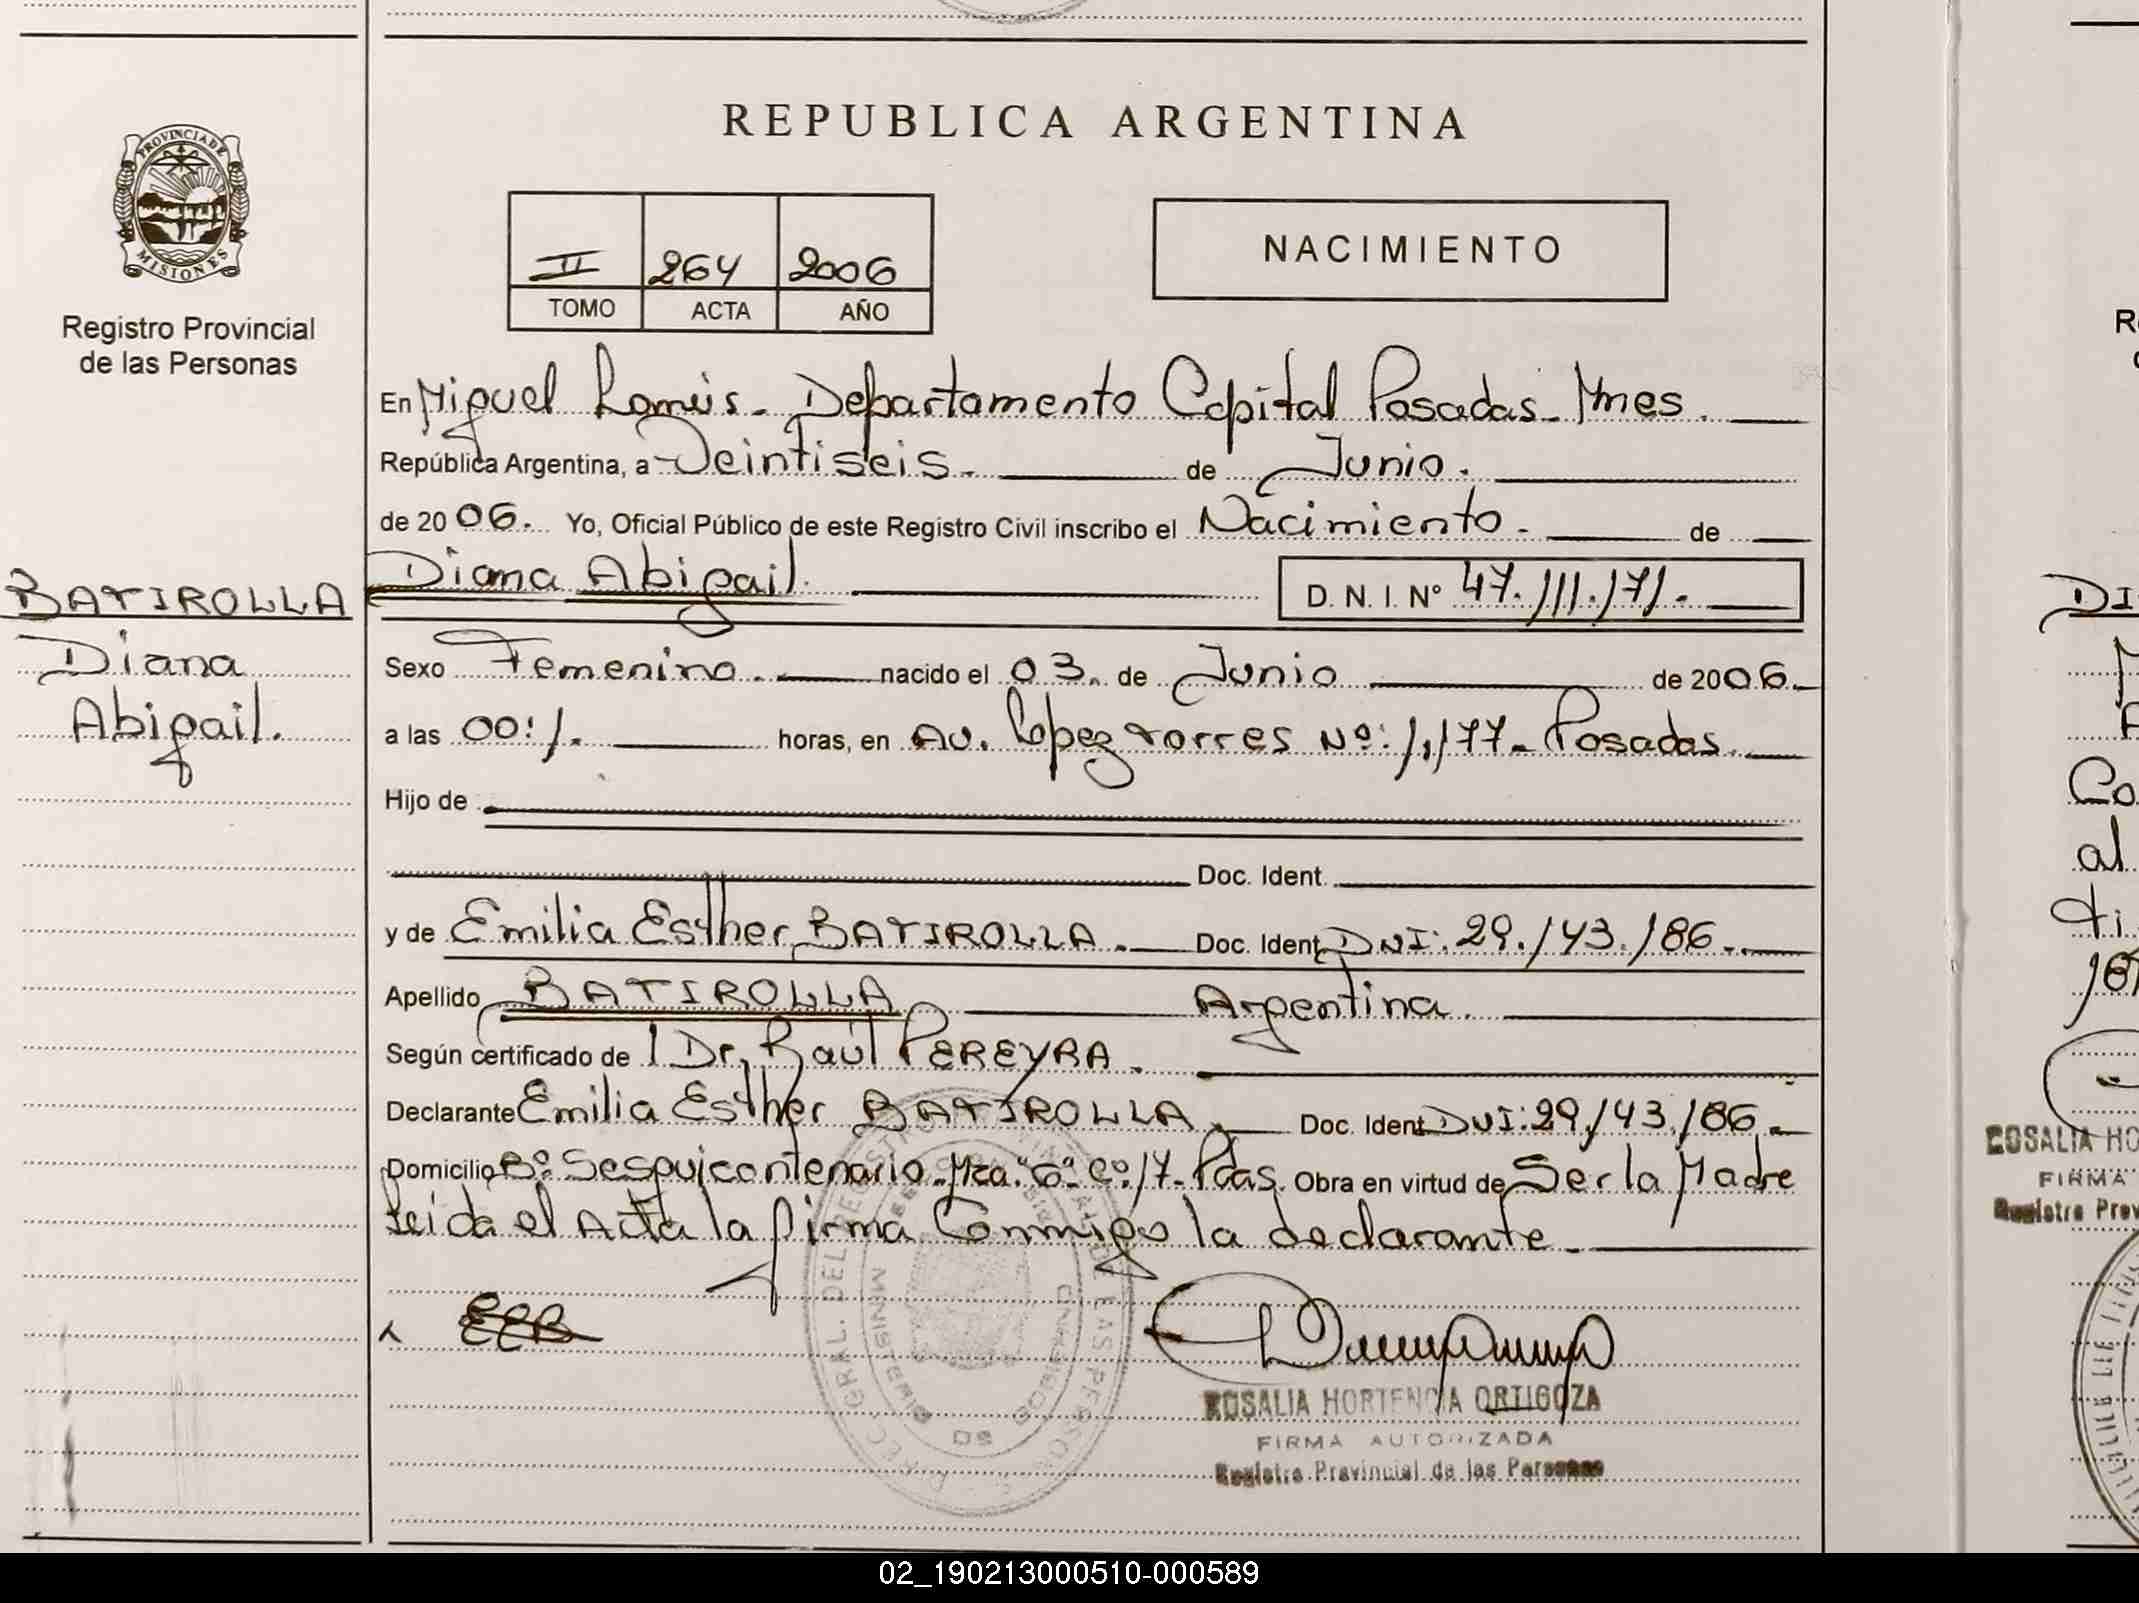 PROVINCIA DE
MISIONES
Registro Provincial
de las Personas
BATIROLLA
Diana
Abigail.
REPUBLICA ARGENTINA
II 264 2006
TOMO ACTA AÑO
NACIMIENTO
En Miguel Laneis. Departamento Capital Posadas. Mnes.
República Argentina, a Veintiseis. de Junio.
de 2006. Yo, Oficial Público de este Registro Civil inscribo el Nacimiento. de
Diana Abigail. D. N. I. Nº 47.111.171.
Sexo Femenino. nacido el 03. de Junio de 2006.
a las 00:1. horas, en AV. Lopez Torres Nº: 1,177. Posadas.
Hijo de
Doc. Ident.
y de Emilia Esther BATIROLLA. Doc. Ident. DNI: 29.143.186.
Apellido BATIROLLA Argentina.
Según certificado de l Dr. Raúl PEREYRA.
Declarante Emilia Esther BATIROLLA, Doc. Ident. DNI: 29.143.186.
Domicilio Bº Sesquicentenario. Mza. "G" Cº 17. Pdas. Obra en virtud de Ser la Madre
Leida el Acta la firma Conmigo la declarante.
EEB
ROSALIA HORTENCIA ORTIGOZA
FIRMA AUTORIZADA
Registro Provincial de las Personas
DI
Co
al
ROSALIA HO
FIRMA
Registro Prov
02_190213000510-000589